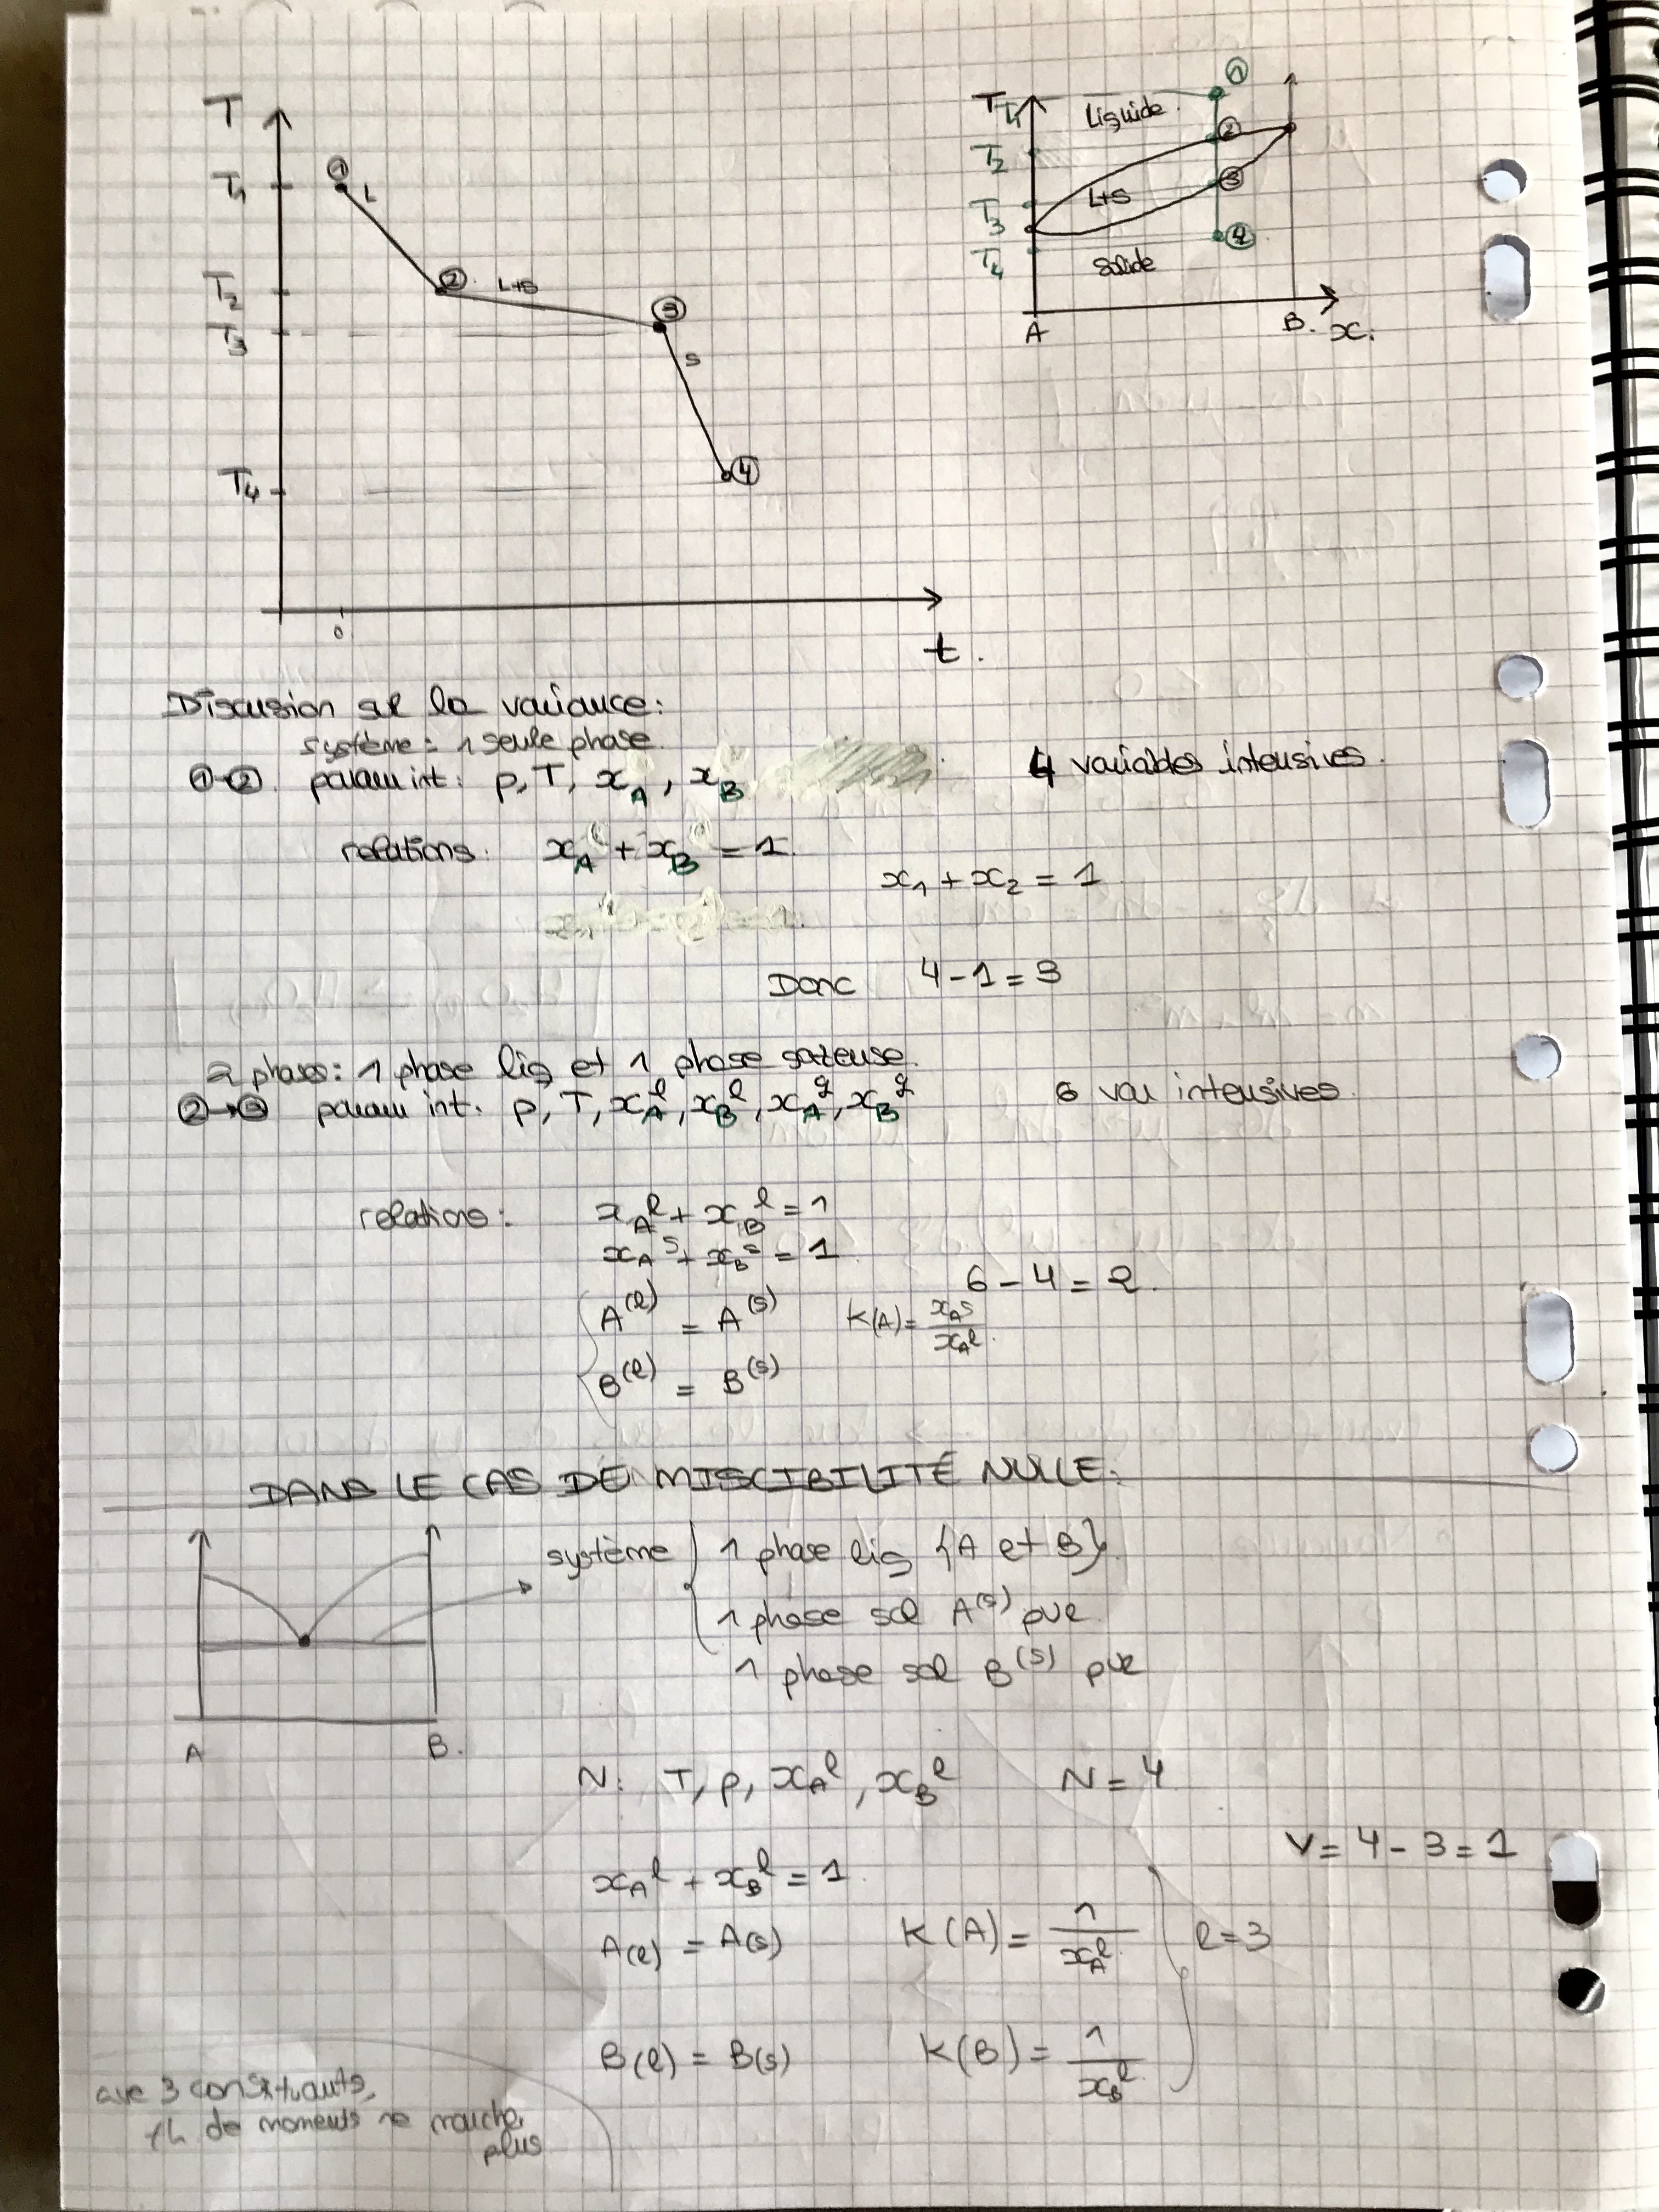 T
T₁
① L
T₂
② L+S
③
T₃
S
T₄
④
0
t.
T T₁
Liquide.
①
T₂
②
L+S
③
T₃
T₄
④
Solide
A
B. x.
Discussion sur la variance:
système = 1 seule phase.
①→② param int: p, T, x_A, x_B 4 variables intensives.
relations: x_A + x_B = 1.
x₁ + x₂ = 1
Donc 4 - 1 = 3
2 phases: 1 phase liq et 1 phase gazeuse.
②→③ param int. p, T, x_A^l, x_B^l, x_A^g, x_B^g 6 var intensives.
relations: x_A^l + x_B^l = 1
x_A^s + x_B^s = 1
6 - 4 = 2.
A^(l) = A^(s) K(A) = x_A^s / x_A^l.
B^(l) = B^(s)
DANS LE CAS DE MISCIBILITÉ NULLE:
système { 1 phase liq {A et B}.
1 phase sol A^(s) pur
1 phase sol B^(s) pur
A
B.
N: T, p, x_A^l, x_B^l N = 4
V = 4 - 3 = 1
x_A^l + x_B^l = 1
A(l) = A(s) K(A) = 1 / x_A^l. r = 3
B(l) = B(s) K(B) = 1 / x_B^l
avc 3 constituants,
th de moments ne marche
plus